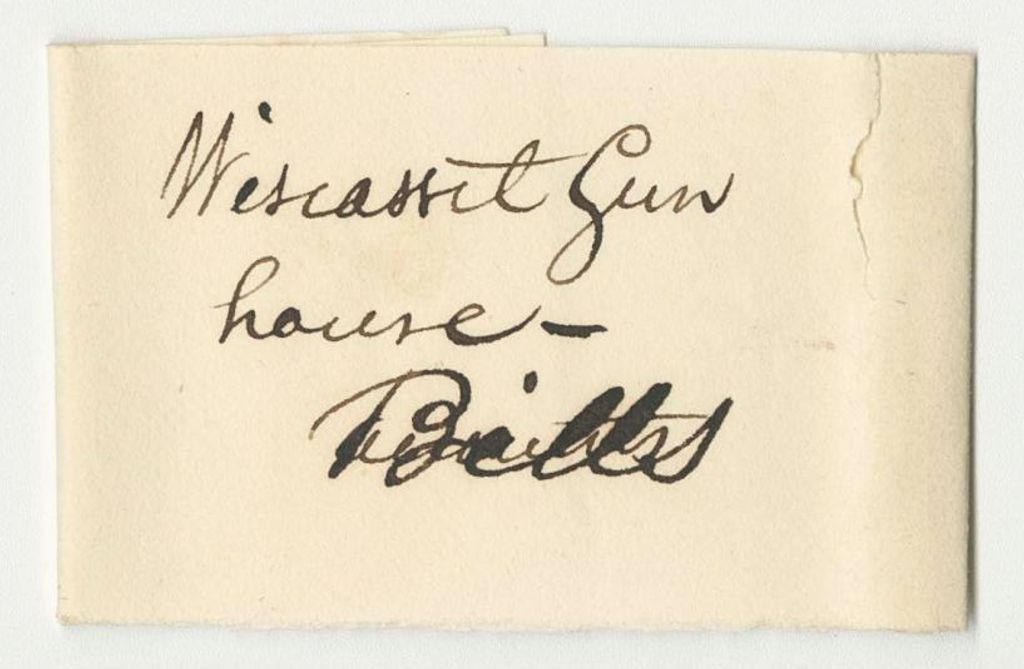 Wiscasset Gun
house –
Bills